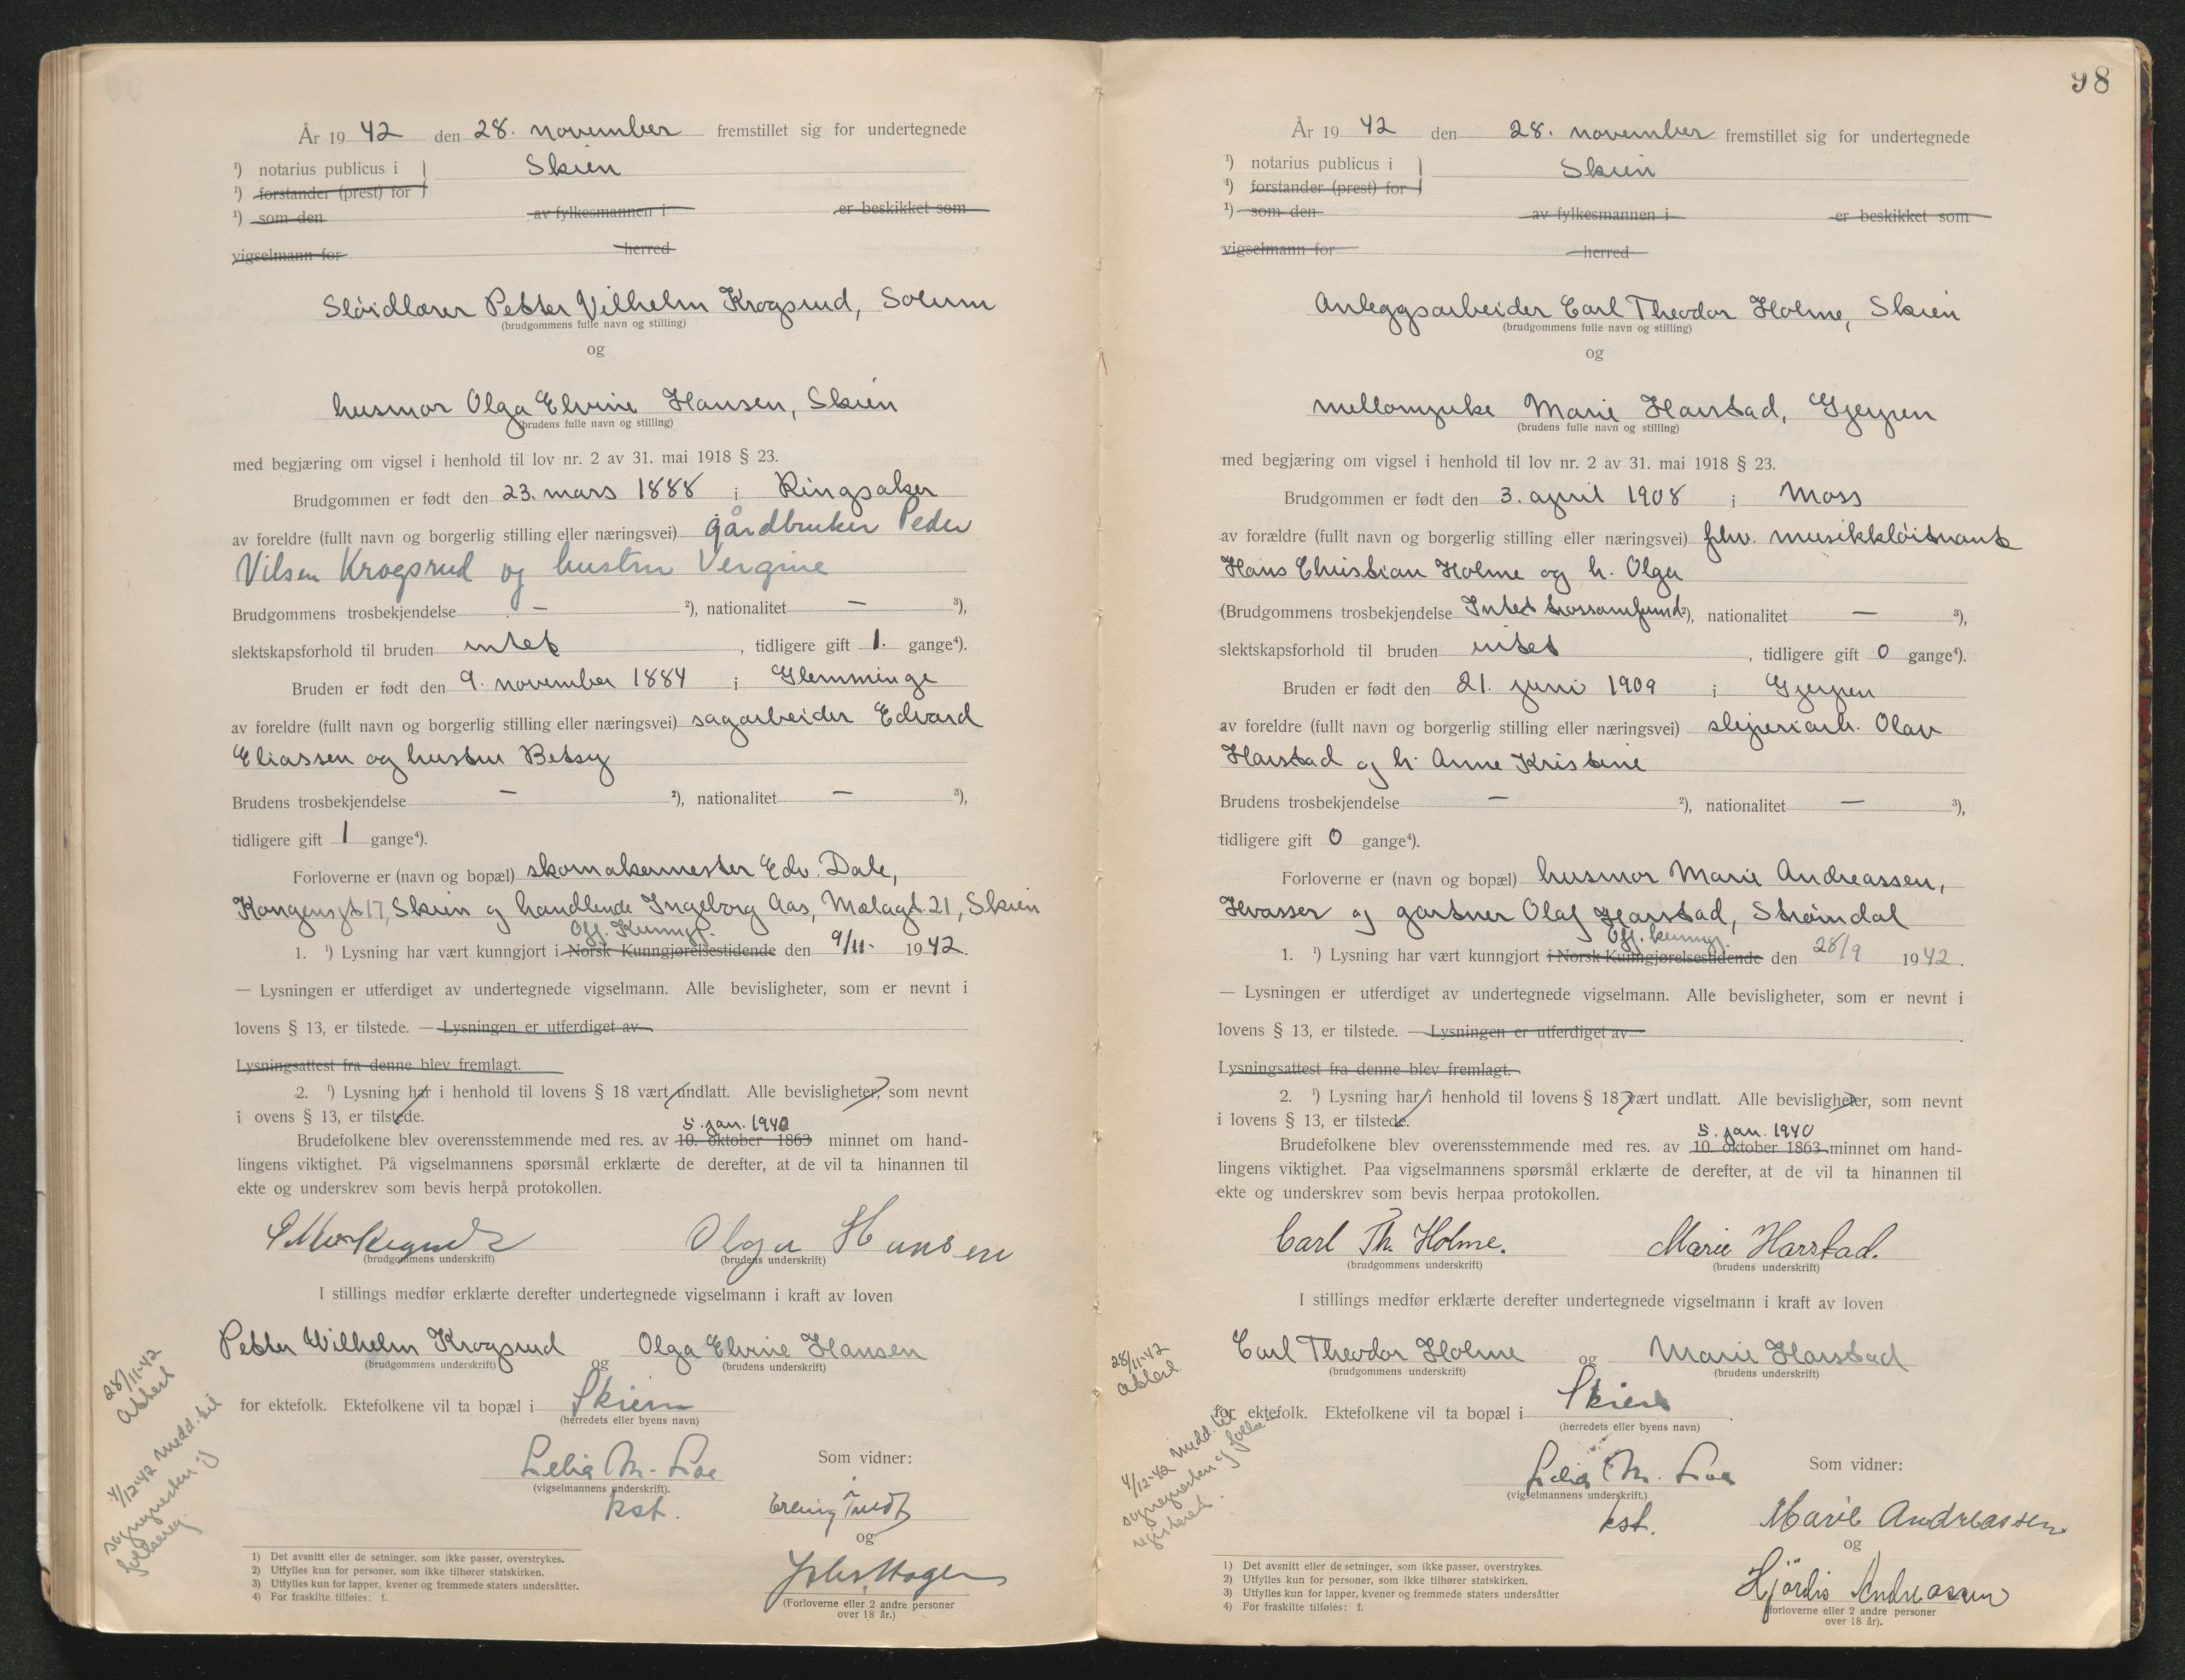 År 19 42 den 28. november fremstillet sig for undertegnede
¹) notarius publicus i } Skien
¹) forstander (prest) for }
¹) som den av fylkesmannen i er beskikket som
vigselmann for herred
Sløidlærer Petter Vilhelm Krogsrud, Solum
(brudgommens fulle navn og stilling)
og
husmor Olga Elvine Hansen, Skien
(brudens fulle navn og stilling)
med begjæring om vigsel i henhold til lov nr. 2 av 31. mai 1918 § 23.
Brudgommen er født den 23. mars 1888 i Ringsaker
av foreldre (fullt navn og borgerlig stilling eller næringsvei) gårdbruker Peder
Vilsen Krogsrud og hustru Vergine
Brudgommens trosbekjendelse — ²), nationalitet — ³),
slektskapsforhold til bruden intet, tidligere gift 1. gange⁴).
Bruden er født den 9. november 1884 i Glemminge
av foreldre (fullt navn og borgerlig stilling eller næringsvei) sagarbeider Edvard
Eliassen og hustru Betsy
Brudens trosbekjendelse — ²), nationalitet — ³),
tidligere gift 1 gange⁴).
Forloverne er (navn og bopæl) skomakermester Edv. Dale,
Kongensgt 17, Skien og handlende Ingeborg Aas, Mælagt. 21, Skien
Off. Kunngj.
1. ¹) Lysning har vært kunngjort i Norsk Kunngjørelsestidende den 9/11- 1942.
— Lysningen er utferdiget av undertegnede vigselmann. Alle bevisligheter, som er nevnt i
lovens § 13, er tilstede. — Lysningen er utferdiget av
Lysningsattest fra denne blev fremlagt.
2. ¹) Lysning har i henhold til lovens § 18 vært undlatt. Alle bevisligheter, som nevnt
i ovens § 13, er tilstede.
5. jan. 1940
Brudefolkene blev overensstemmende med res. av 10. oktober 1863 minnet om hand-
lingens viktighet. På vigselmannens spørsmål erklærte de derefter, at de vil ta hinannen til
ekte og underskrev som bevis herpå protokollen.
Olga Hansen
(brudgommens underskrift) (brudens underskrift)
I stillings medfør erklærte derefter undertegnede vigselmann i kraft av loven
Petter Wilhelm Krogsrud og Olga Elvine Hansen
(brudgommens underskrift) (brudens underskrift)
for ektefolk. Ektefolkene vil ta bopæl i Skien
(herredets eller byens navn)
28/11-42
attest
4/12-42 medd. til
sognepresten og
folkereg.
Lelia M. Loe
(vigselmannens underskrift).
kst.
Som vidner:
Erling
og
(Forloverne eller 2 andre personer
over 18 år.)
1) Det avsnitt eller de setninger, som ikke passer, overstrykes.
2) Utfylles kun for personer, som ikke tilhører statskirken.
3) Utfylles kun for lapper, kvener og fremmede staters undersåtter.
4) For fraskilte tilføies: f.
98
År 19 42 den 28. november fremstillet sig for undertegnede
¹) notarius publicus i } Skien
¹) forstander (prest) for }
¹) som den av fylkesmannen i er beskikket som
vigselmann for herred
Anleggsarbeider Carl Theodor Holme, Skien
(brudgommens fulle navn og stilling)
og
mellomyrke Marie Harstad, Gjerpen
(brudens fulle navn og stilling)
med begjæring om vigsel i henhold til lov nr. 2 av 31. mai 1918 § 23.
Brudgommen er født den 3. april 1908 i Moss
av forældre (fullt navn og borgerlig stilling eller næringsvei) fhv. musikkløitnant
Hans Christian Holme og h. Olga
(Brudgommens trosbekjendelse Intet trossamfund ²), nationalitet — ³),
slektskapsforhold til bruden intet, tidligere gift 0 gange⁴).
Bruden er født den 21. juni 1909 i Gjerpen
av foreldre (fullt navn og borgerlig stilling eller næringsvei) sliperiarb. Olav
Harstad og h. Anne Kristine
Brudens trosbekjendelse — ²), nationalitet — ³),
tidligere gift 0 gange⁴).
Forloverne er (navn og bopæl) husmor Marie Andreassen,
Hvasser og gartner Olaf Harstad, Strømdal
Off. kunngj.
1. ¹) Lysning har vært kunngjort i Norsk Kunngjørelsestidende den 28/9 1942.
— Lysningen er utferdiget av undertegnede vigselmann. Alle bevisligheter, som er nevnt i
lovens § 13, er tilstede. — Lysningen er utferdiget av
Lysningsattest fra denne blev fremlagt.
2. ¹) Lysning har i henhold til lovens § 18 vært undlatt. Alle bevisligheter, som nevnt
i lovens § 13, er tilstede.
5. jan. 1940
Brudefolkene blev overensstemmende med res. av 10. oktober 1863 minnet om hand-
lingens viktighet. Paa vigselmannens spørsmål erklærte de derefter, at de vil ta hinannen til
ekte og underskrev som bevis herpaa protokollen.
Carl Th. Holme. Marie Harstad.
(brudgommens underskrift) (brudens underskrift)
I stillings medfør erklærte derefter undertegnede vigselmann i kraft av loven
Carl Theodor Holme og Marie Harstad
(brudgommens underskrift) (brudens underskrift)
for ektefolk. Ektefolkene vil ta bopæl i Skien.
(herredets eller byens navn)
28/11-42
attest
4/12-42 medd. til
sognepresten og folke-
registeret.
Lelia M. Loe
(vigselmannens underskrift.)
kst.
Som vidner:
Marie Andreassen
og
Hjördis Andreassen
(forloverne eller 2 andre personer
over 18 år).
1) Det avsnitt eller de setninger, som ikke passer, overstrykes.
2) Utfylles kun for personer, som ikke tilhører statskirken.
3) Utfylles kun for lapper, kvener og fremmede staters undersåtter
4) For fraskilte tilføies: f.